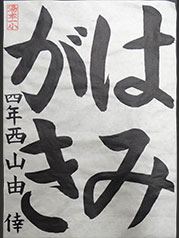 はみ
がき
四年西山由倖